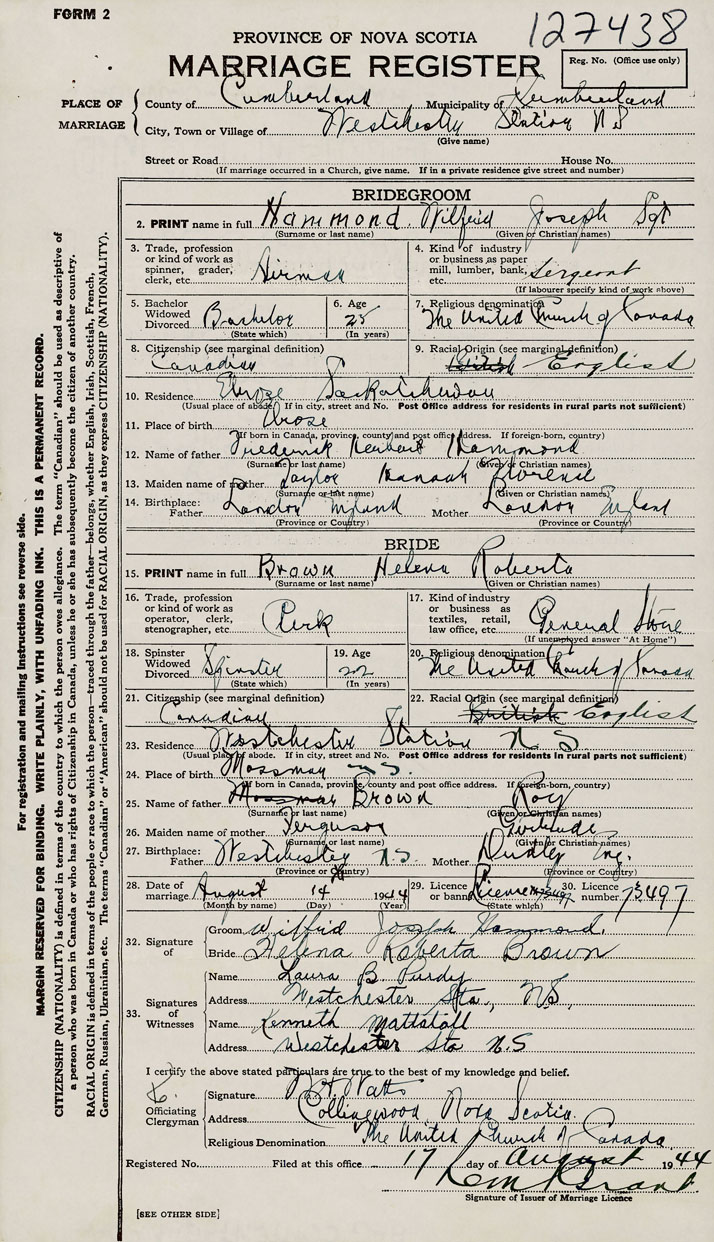 FORM 2
127438
PROVINCE OF NOVA SCOTIA
MARRIAGE REGISTER
Reg. No. (Office use only)
PLACE OF MARRIAGE
County of Cumberland Municipality of Cumberland
City, Town or Village of Westchester Station N S
(Give name)
Street or Road House No.
(If marriage occurred in a Church, give name. If in a private residence give street and number)
BRIDEGROOM
2. PRINT name in full Hammond Wilfrid Joseph Sgt
(Surname or last name) (Given or Christian names)
3. Trade, profession or kind of work as spinner, grader, clerk, etc. Airman
4. Kind of industry or business as paper mill, lumber, bank, etc. Sergeant
(If labourer specify kind of work above)
5. Bachelor Widowed Divorced Bachelor
(State which)
6. Age 25
(In years)
7. Religious denomination The United Church of Canada
8. Citizenship (see marginal definition) Canadian
9. Racial Origin (see marginal definition) British English
10. Residence Elrose Saskatchewan
(Usual place of abode. If in city, street and No. Post Office address for residents in rural parts not sufficient)
11. Place of birth
(If born in Canada, province, county and post office address. If foreign-born, country)
12. Name of father Frederick Herbert Hammond
(Surname or last name) (Given or Christian names)
13. Maiden name of mother Taylor Hannah Florence
(Surname or last name) (Given or Christian names)
14. Birthplace: Father London England Mother London England
(Province or Country) (Province or Country)
BRIDE
15. PRINT name in full Brown Helena Roberta
(Surname or last name) (Given or Christian names)
16. Trade, profession or kind of work as operator, clerk, stenographer, etc. Clerk
17. Kind of industry or business as textiles, retail, law office, etc. General Store
(If unemployed answer "At Home")
18. Spinster Widowed Divorced Spinster
(State which)
19. Age 22
(In years)
20. Religious denomination The United Church of Canada
21. Citizenship (see marginal definition) Canadian
22. Racial Origin (see marginal definition) British English
23. Residence Westchester Station N S
(Usual place of abode. If in city, street and No. Post Office address for residents in rural parts not sufficient)
24. Place of birth N.S.
(If born in Canada, province, county and post office address. If foreign-born, country)
25. Name of father Brown Roy
(Surname or last name) (Given or Christian names)
26. Maiden name of mother Ferguson Gertrude
(Surname or last name) (Given or Christian names)
27. Birthplace: Father Westchester N.S. Mother Dudley Eng.
(Province or Country) (Province or Country)
28. Date of marriage August 14 1944
(Month by name) (Day) (Year)
29. Licence or banns License
(State which)
30. Licence number 73497
32. Signature of
Groom Wilfrid Joseph Hammond.
Bride Helena Roberta Brown
33. Signatures of Witnesses
Name Laura B. Purdy
Address Westchester Sta., N.S.,
Name Kenneth Mattatall
Address Westchester Sta N.S
I certify the above stated particulars are true to the best of my knowledge and belief.
Officiating Clergyman
Signature Watts
Address Collingwood, Nova Scotia.
Religious Denomination The United Church of Canada
Registered No. Filed at this office 17 day of August 1944
Signature of Issuer of Marriage Licence
[SEE OTHER SIDE]
For registration and mailing instructions see reverse side.
MARGIN RESERVED FOR BINDING. WRITE PLAINLY, WITH UNFADING INK. THIS IS A PERMANENT RECORD.
CITIZENSHIP (NATIONALITY) is defined in terms of the country to which the person owes allegiance. The term "Canadian" should be used as descriptive of
a person who was born in Canada or who has rights of Citizenship in Canada, unless he or she has subsequently become the citizen of another country.
RACIAL ORIGIN is defined in terms of the people or race to which the person—traced through the father—belongs, whether English, Irish, Scottish, French,
German, Russian, Ukrainian, etc. The terms "Canadian" or "American" should not be used for RACIAL ORIGIN, as they express CITIZENSHIP (NATIONALITY).